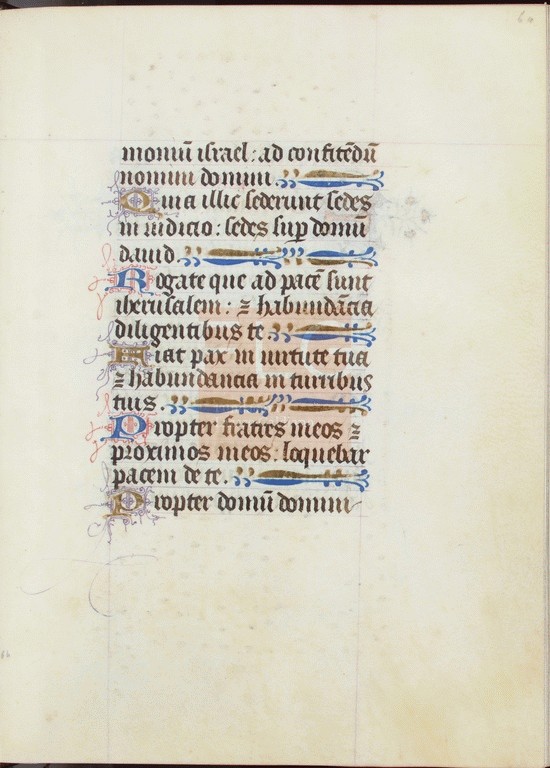 moniū israel: ad confitēdū
nomini domini.
Quia illic sederunt sedes
in iudicio: sedes sup̄ domū
dauid.
Rogate que ad pacē sunt
iherusalem: ⁊ habundācia
diligentibus te.
Fiat pax in uirtute tua
⁊ habundancia in turribus
tuis.
Propter fratres meos ⁊
proximos meos: loquebar
pacem de te.
Propter domū domini